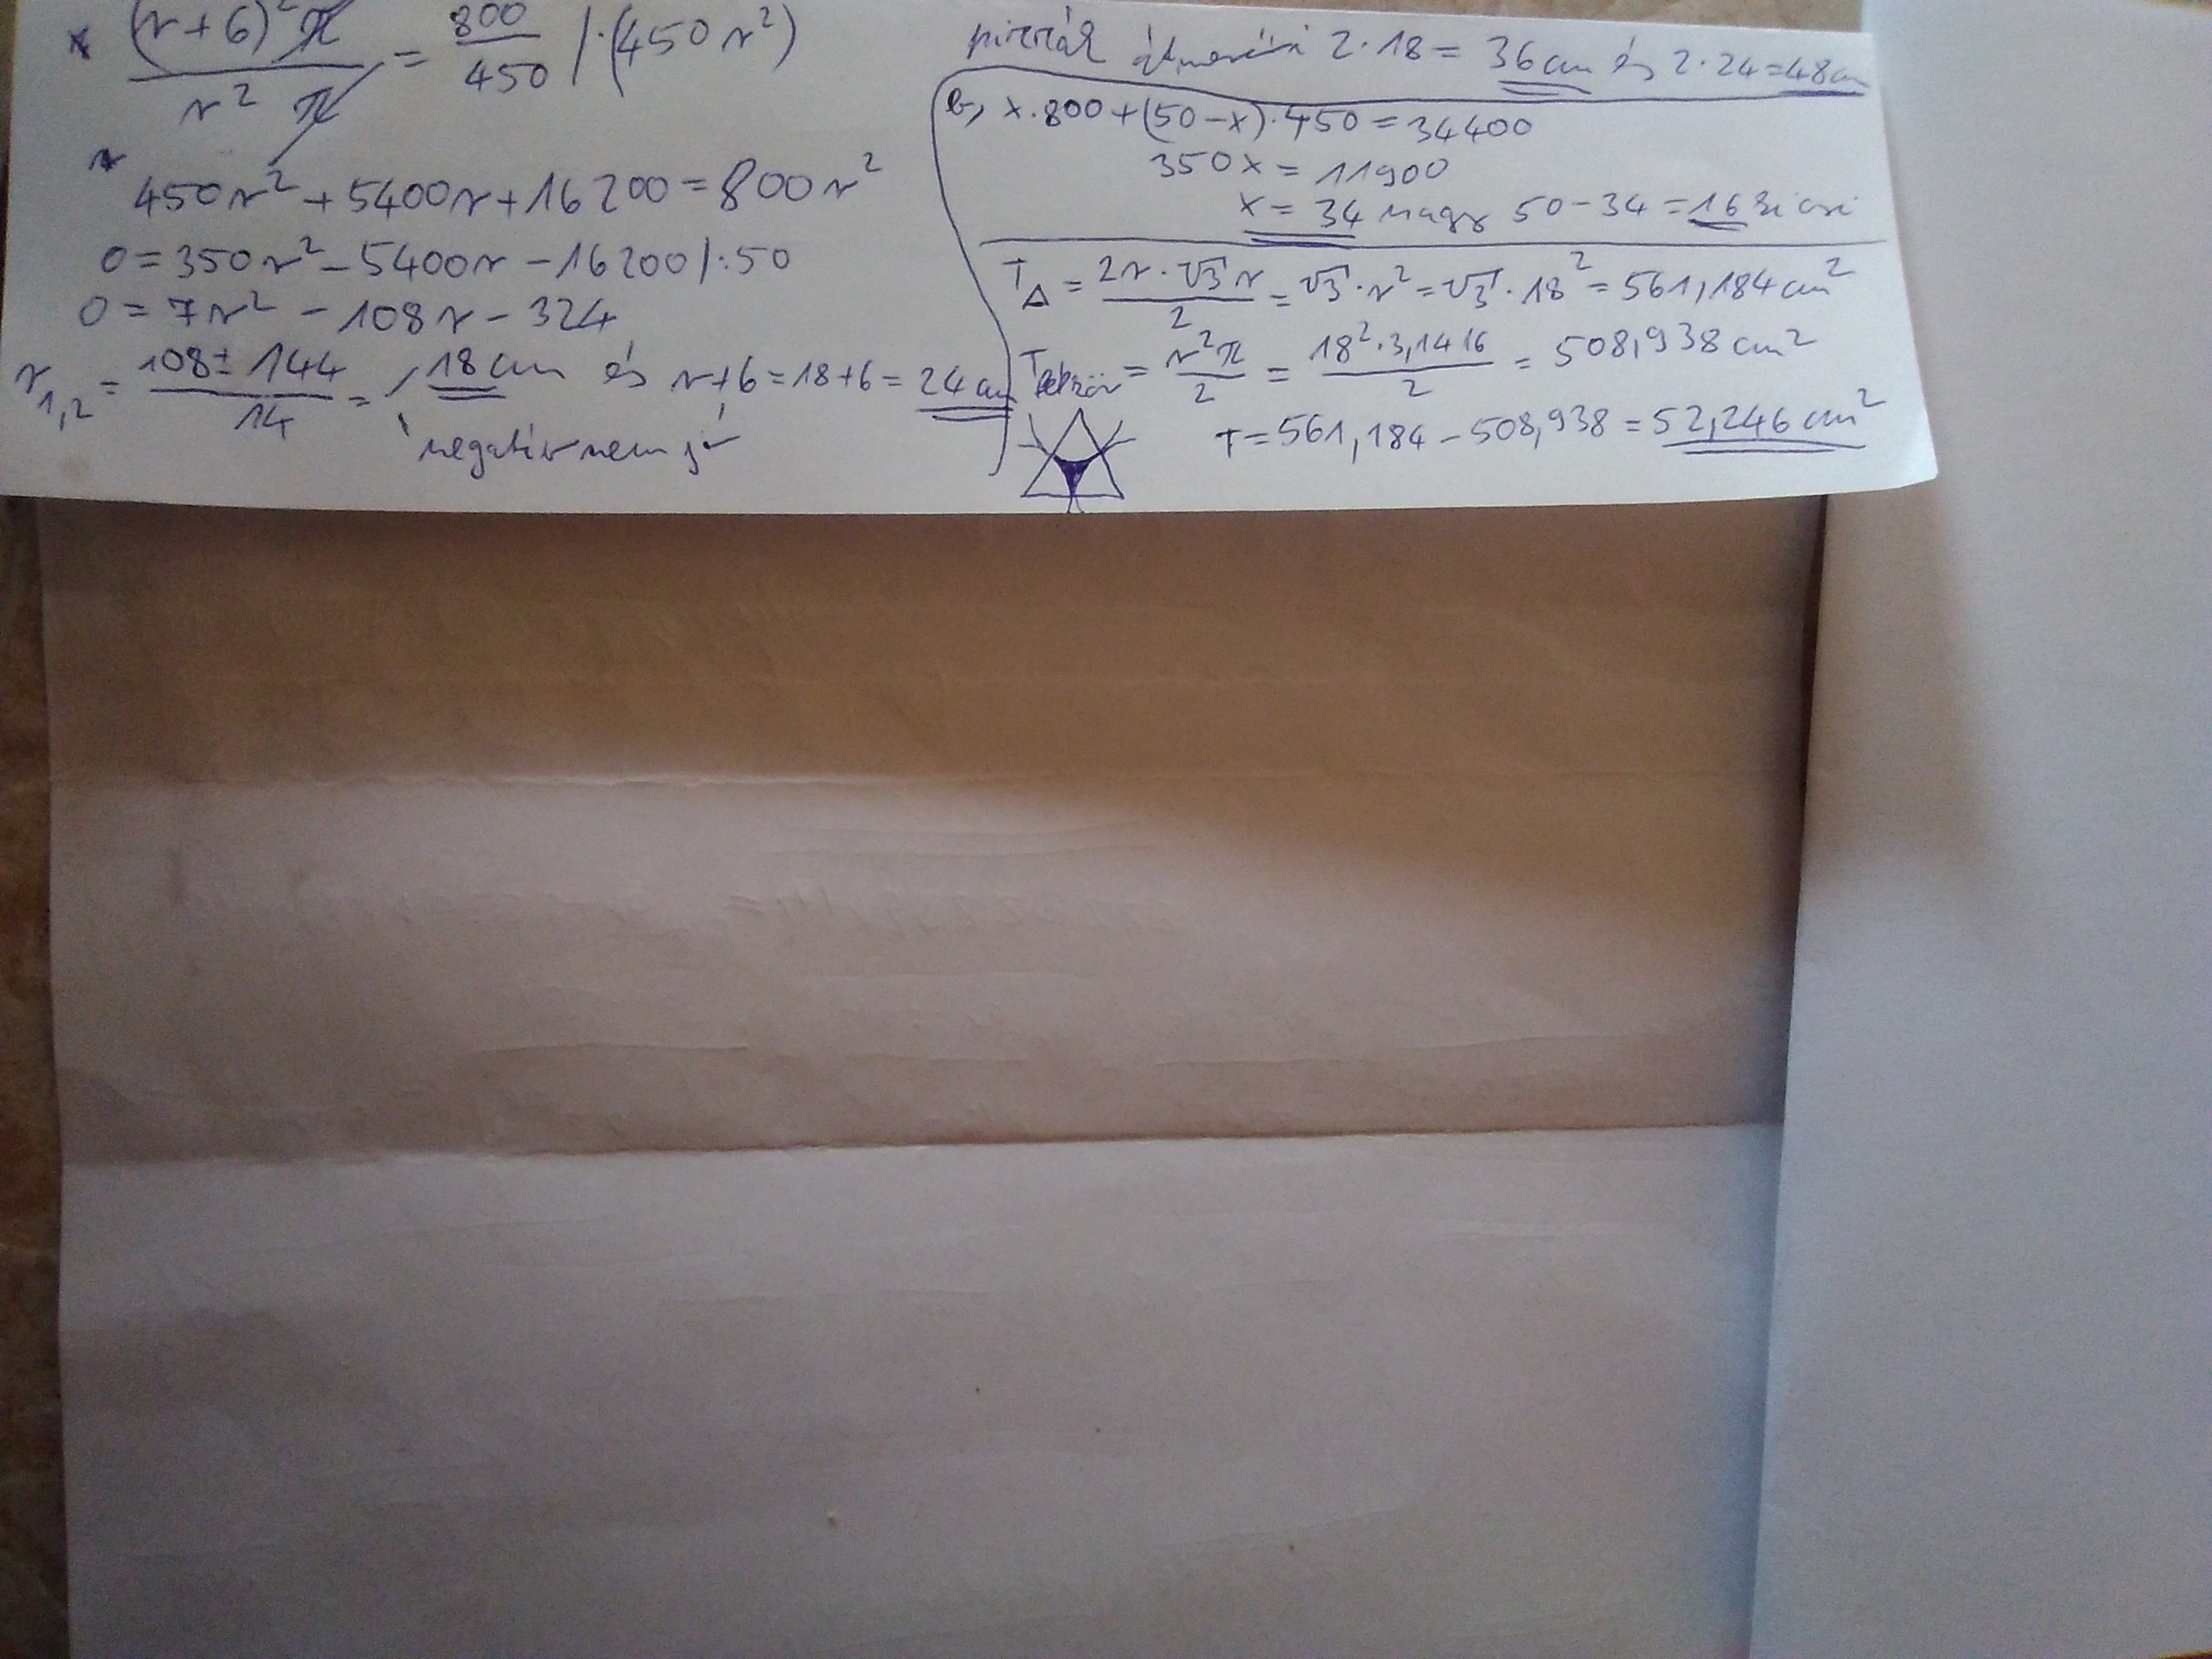 (r+6)²π / r²π = 800/450 /·(450r²)
450r²+5400r+16200=800r²
0=350r²-5400r-16200/:50
0=7r²-108r-324
r₁,₂ = (108±144)/14 = 18 cm és r+6=18+6=24 cm
negatív nem jó
pizzák átmérői 2·18=36cm és 2·24=48cm
b, x·800+(50-x)·450=34400
350x=11900
x=34 nagy 50-34=16 kicsi
T△ = (2r·√3r)/2 = √3·r²=√3·18²=561,184cm²
Tfélkör = r²π/2 = (18²·3,1416)/2 = 508,938cm²
T=561,184-508,938=52,246cm²